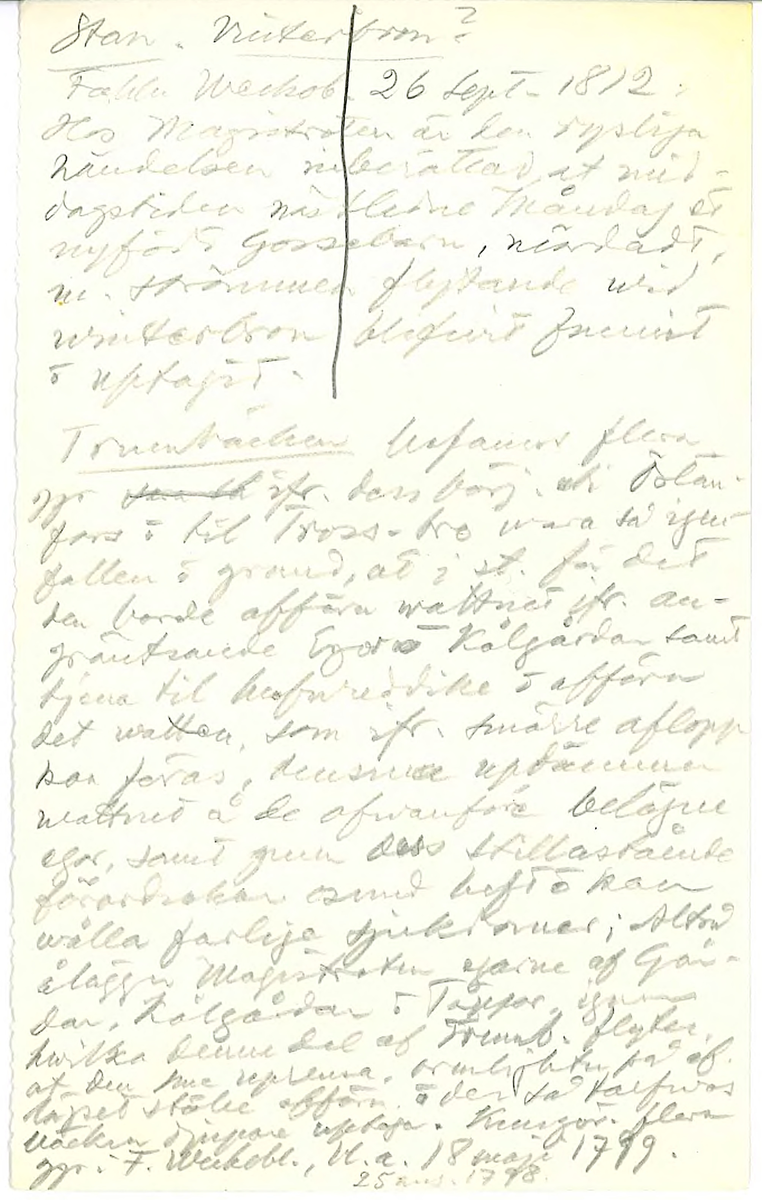 Stan. Vinterbron?
Fahlu Weckobl. 26 Sept. 1812:
Hos Magistraten är den rysliga
händelsen inberättad, at mid-
dagstiden nästledne Måndag et
nyfödt Gossebarn, mördadt,
m. strömmen flytande wid
winterbron blifwit funnit
o uptagit.
Trumbäcken befanns flera
ggr ifr. dess börj. i Östan-
fors o til Tross-bro wara så igen
fallen o grund, at i st. för det
den borde afföra wattnet ifr. an-
gräntsande Egor o Kålgårdar samt
tjena til hufwuddike o afföra
det watten, som ifr. smärre aflopp
kan föras, densamma updämmer
wattnet å de ofwanföre belägne
egor, samt genom dess stillastående
förordsakar osund luft o kan
wålla farlige sjukdomar; Altså
ålägger Magistraten egarne af Går-
dar, Kålgårdar o Täppor, igenom
hwilka denne del af Trumb. flyter,
at den
bäcken djupare uptaga. Kungör. flera
ggr i F. Weckobl., bl.a. 18 maji 1799.
25 aug. 1798.